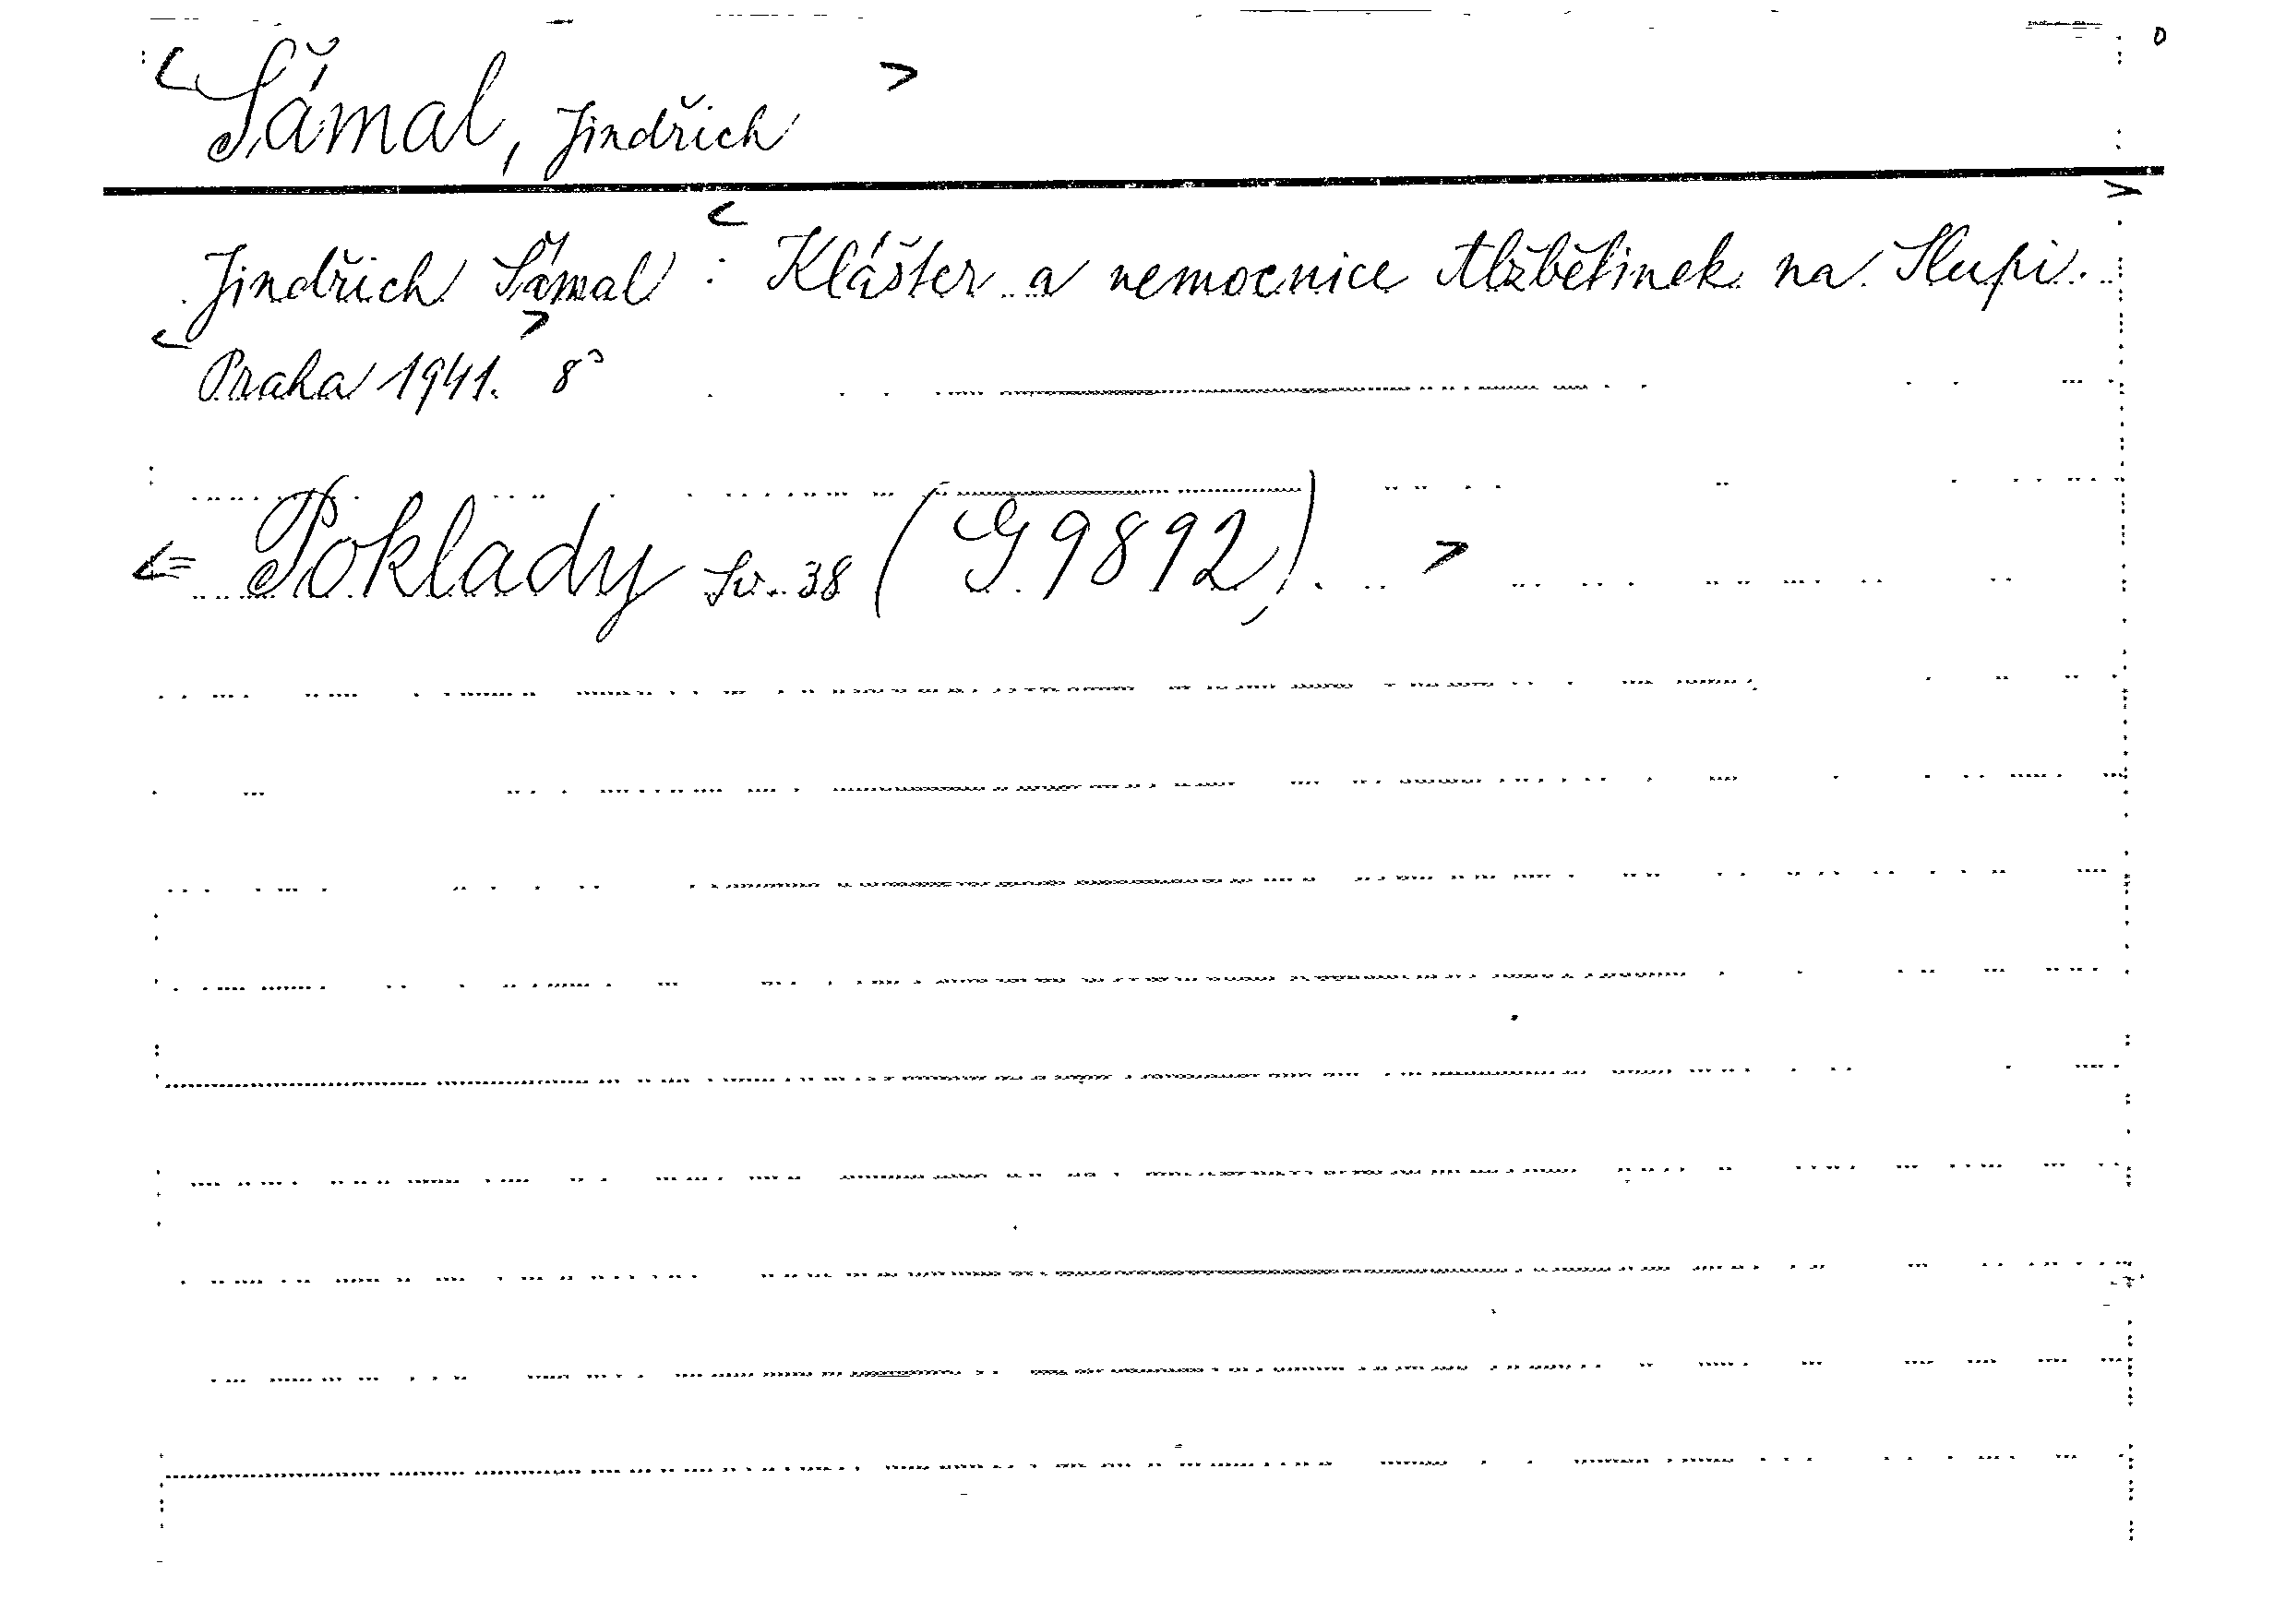 <Šámal, Jindřich>
Jindřich Šámal : <Klášter a nemocnice Alžbětinek na Slupi.>
<Praha 1941.> 8°
<= Poklady Sv. 38 (G.9892). >